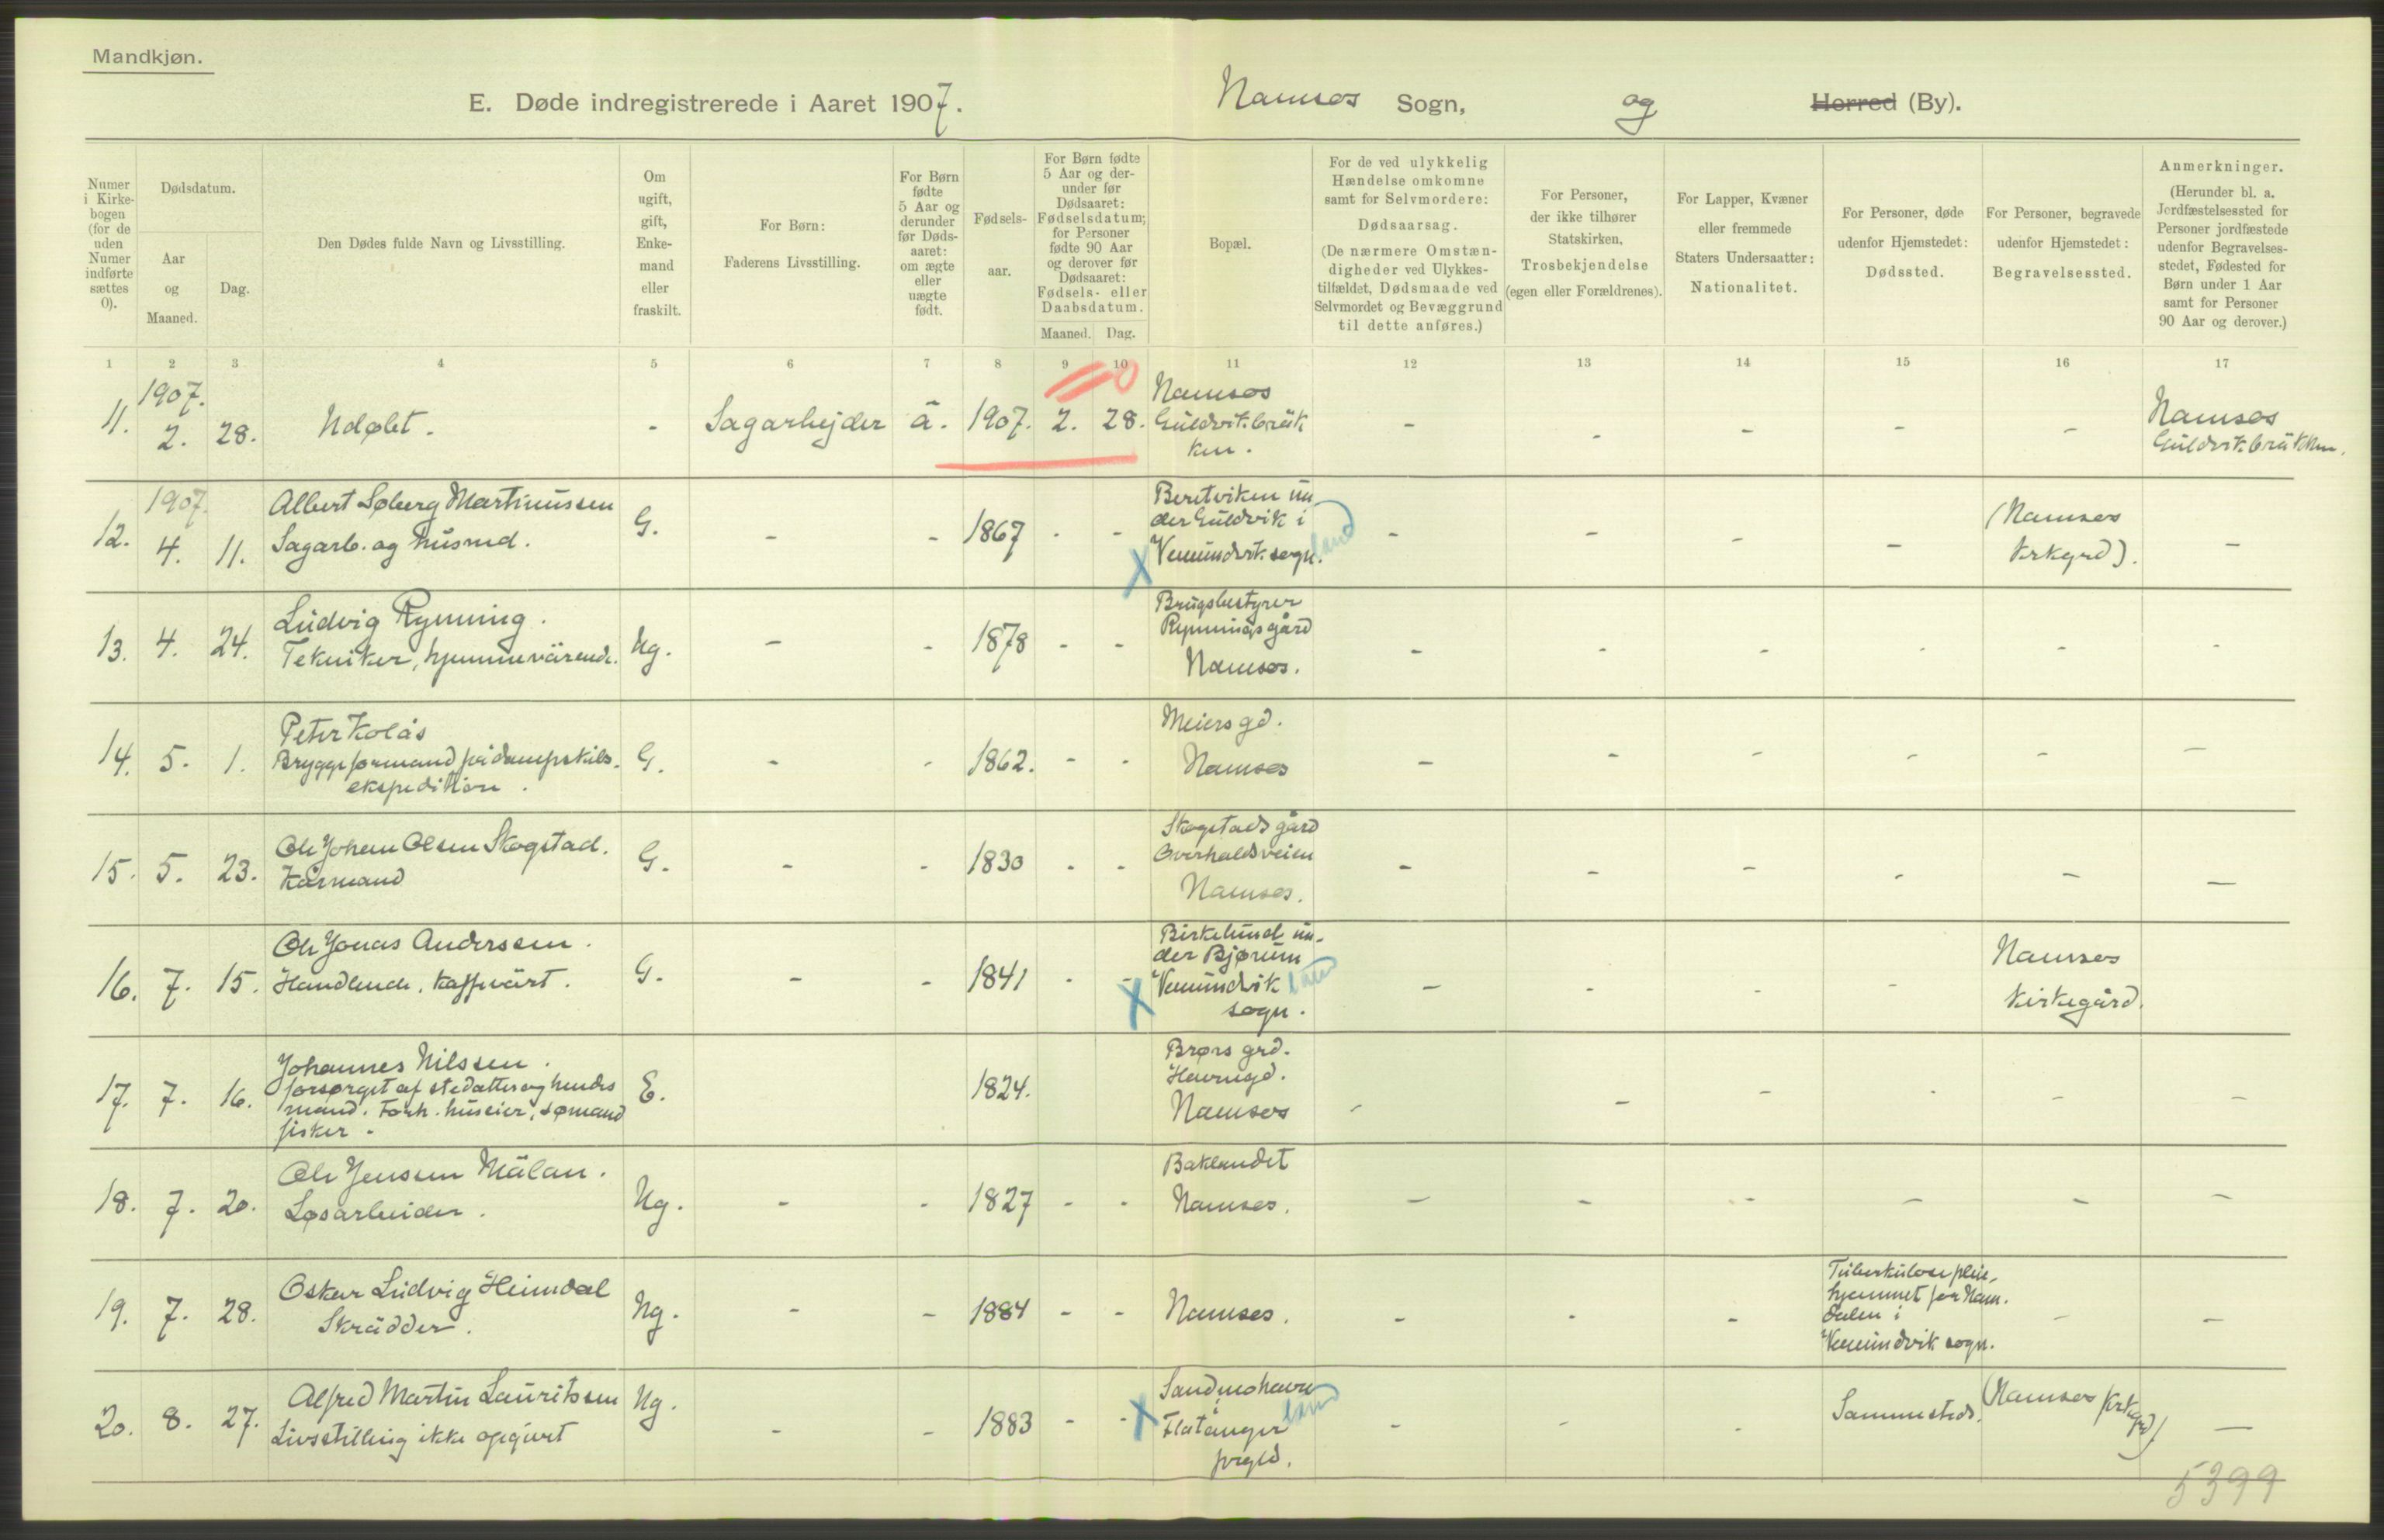 Mandkjøn.
E. Døde indregistrerede i Aaret 1907.
Namsos Sogn, og Herred (By).
Numer
i Kirke-
bogen
(for de
uden
Numer
indførte
sættes
0).
Dødsdatum.
Aar
og
Maaned.
Dag.
Den Dødes fulde Navn og Livsstilling.
Om
ugift,
gift,
Enke-
mand
eller
fraskilt.
For Børn:
Faderens Livsstilling.
For Børn
fødte
5 Aar og
derunder
før Døds-
aaret:
om ægte
eller
uægte
født.
Fødsels-
aar.
For Børn fødte
5 Aar og der-
under før
Dødsaaret:
Fødselsdatum;
for Personer
fødte 90 Aar
og derover før
Dødsaaret:
Fødsels- eller
Daabsdatum.
Maaned. Dag.
Bopæl.
For de ved ulykkelig
Hændelse omkomne
samt for Selvmordere:
Dødsaarsag.
(De nærmere Omstæn-
digheder ved Ulykkes-
tilfældet, Dødsmaade ved
Selvmordet og Bevæggrund
til dette anføres.)
For Personer,
der ikke tilhører
Statskirken,
Trosbekjendelse
(egen eller Forældrenes).
For Lapper, Kvæner
eller fremmede
Staters Undersaatter:
Nationalitet.
For Personer, døde
udenfor Hjemstedet:
Dødssted.
For Personer, begravede
udenfor Hjemstedet:
Begravelsessted.
Anmerkninger.
(Herunder bl. a.
Jordfæstelsessted for
Personer jordfæstede
udenfor Begravelses-
stedet, Fødested for
Børn under 1 Aar
samt for Personer
90 Aar og derover.)
1 2 3 4 5 6 7 8 9 10 11 12 13 14 15 16 17
11. 1907. 2. 28. Udøbt. - Sagarbejder ä. 1907. 2. 28.
Namsos
Guldvikbrük
ken.
- - - - -
Namsos
Guldvikbrükken.
12. 1907. 4. 11.
Albert Søberg Martinussen
Sagarb. og husmd.
G. - - 1867 - -
Beretviken un-
der Guldvik i
Vemundvik sogn. land
X
- - - -
(Namsos
Krkgrd).
-
13. 4. 24.
Ludvig Rynning.
Tekniker, hjemmevärende.
Ug. - - 1878 - -
Brugsbestyrer
Rynningsgård
Namsos.
- - - - - -
14. 5. 1.
Peter Kolås
Bryggeformand på dampskibs-
ekspedition.
G. - - 1862. - -
Meiers gd.
Namsos
- - - - - -
15. 5. 23.
Ole Johan Olsen Skogstad.
Kårmand
G. - - 1830 - -
Skogstads gård
Overhaldsveien
Namsos.
- - - - - -
16. 7. 15.
Ole Jonas Anderssen.
Handlende, kaffevärt.
G. - - 1841 - -
Birkelund un-
der Bjørum
Vemundvik land
sogn.
X
- - - -
Namsos
kirkegård.
17. 7. 16.
Johannes Nilssen.
forsørget af stedatter og hendes
mand. Forh. huseier, sømand
fisker.
E. 1824.
Brørs grd.
Havnegd.
Namsos
- - - - - -
18. 7. 20.
Ole Jenssen Mälan.
Løsarbeider.
Ug. - - 1827 - -
Baklandet
Namsos.
- - - - - -
19. 7. 28.
Oskar Ludvig Heimdal
Skrädder.
Ug. - - 1884 - -
Namsos.
- - -
Tuberkulosepleie-
hjemmet for Nam-
dalen i
Vemundvik sogn.
- -
20. 8. 27.
Alfred Martin Lauritssen
Livsstilling ikke opgivet
Ug. - - 1883 - -
X
land
Flatanger
prgld.
- - -
Sammesteds.
(Namsos krkgrd)
-
5399